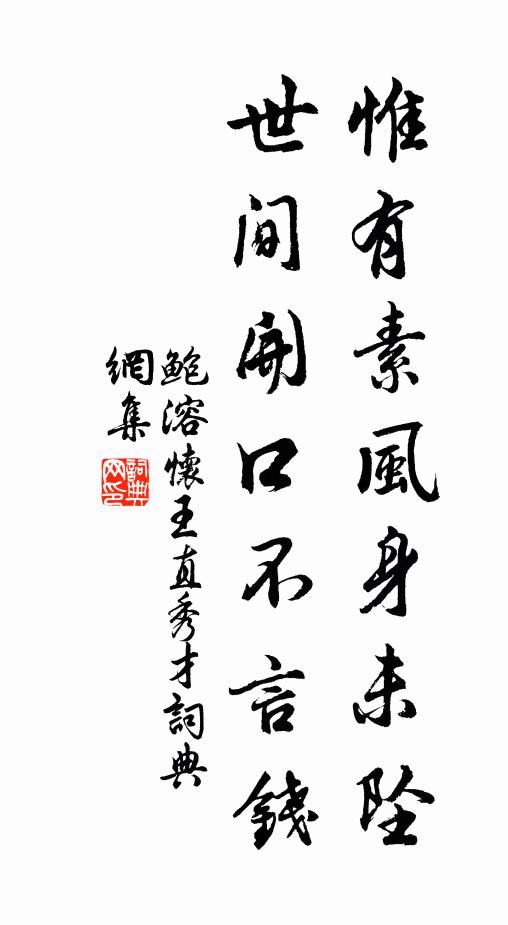 惟有素風身未墜
世间開口不言錢
鲍溶懷王直秀才詞典
網集
詞典网印